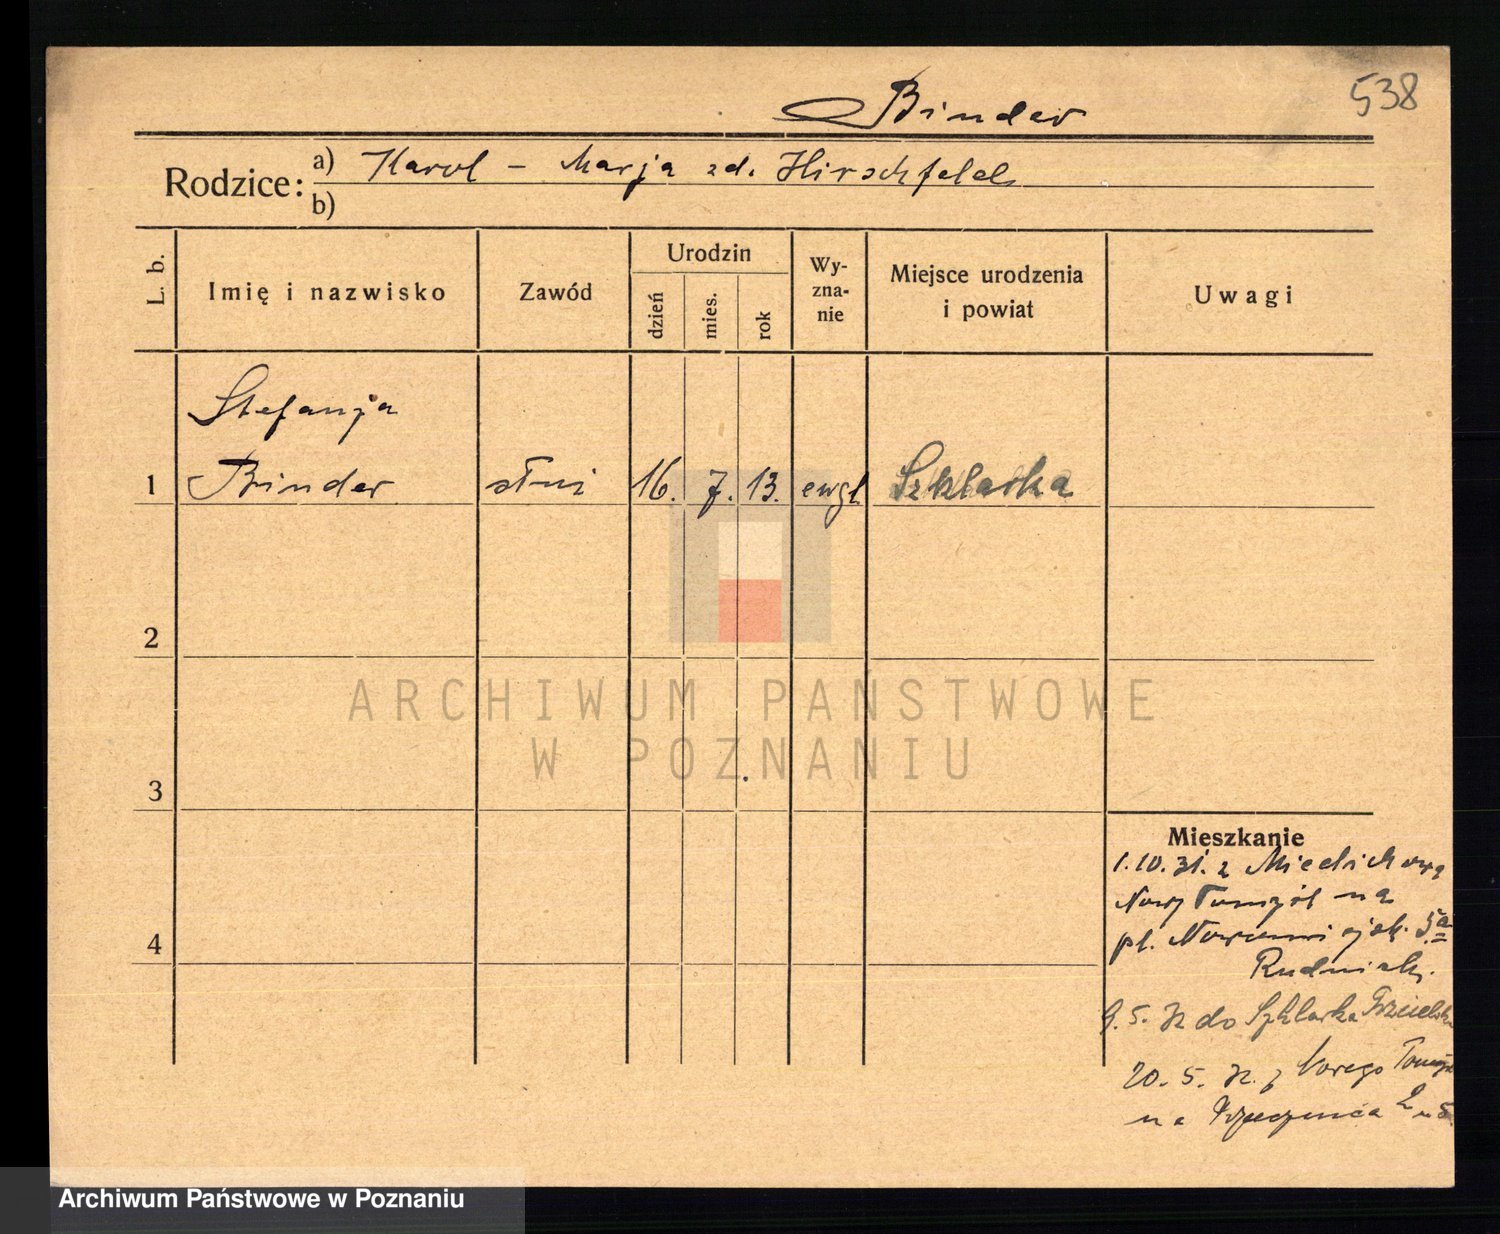 538
Binder
Rodzice: a) Karol – Marja zd. Hirschfeld
b)
L. b. Imię i nazwisko Zawód Urodzin dzień mies. rok Wy-zna-nie Miejsce urodzenia i powiat Uwagi
Stefanja
1 Binder służ 16. 7. 13. ewgl Szklarka
2
ARCHIWUM PAŃSTWOWE
W POZNANIU
3
Mieszkanie
1.10.31. z Miedichowa
Nowy Tomyśl na
4 pl. Nowomiejsk. 5a
9.5.32 do Szklarka Trzcielska
20.5.32. z Nowego Tomyśla
na
Archiwum Państwowe w Poznaniu